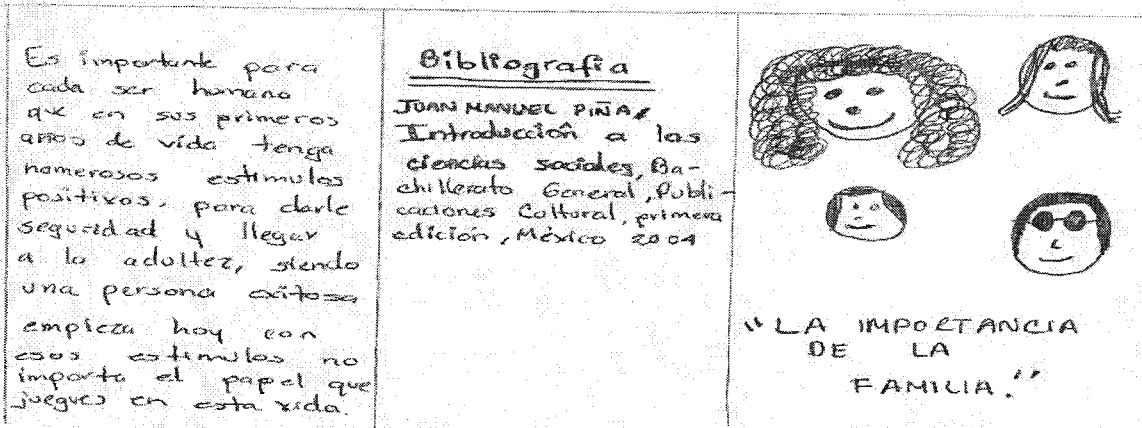 Es importante para
cada ser humano
que en sus primeros
años de vida tenga
numerosos estimulos
positivos, para darle
seguridad y llegar
a la adultez, siendo
una persona exitosa
empieza hoy con
esos estimulos no
importa el papel que
juegues en esta vida.
Bibliografia
JUAN MANUEL PIÑA,
Introducción a las
ciencias sociales, Ba-
chillerato General, Publi-
caciones Cultural, primera
edición, México 2004
"LA IMPORTANCIA
DE LA
FAMILIA."